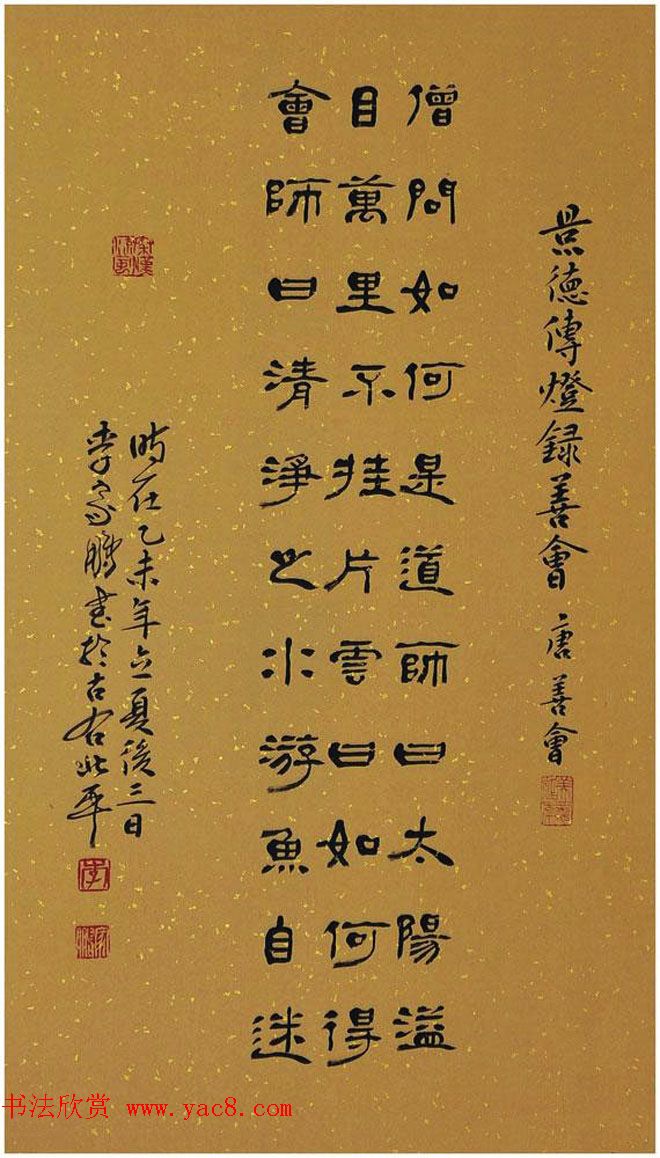 景德傳燈録善會 唐善會
僧問如何是道師曰太陽溢
目萬里不挂片雲曰如何得
會師曰清淨之水游魚自迷
時在乙未年立夏後三日
李家鵬書於古右北平
书法欣赏 www.yac8.com